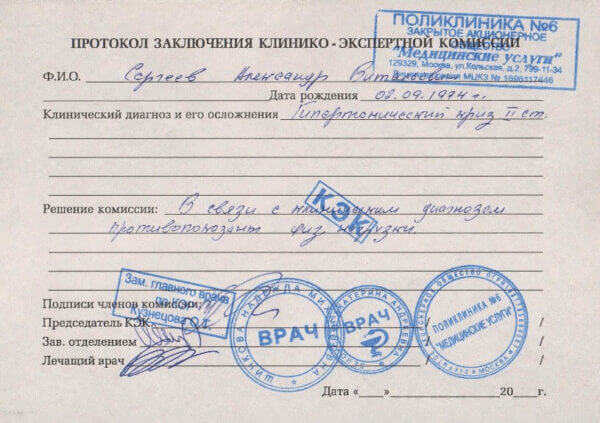 ПОЛИКЛИНИКА №6
ЗАКРЫТОЕ АКЦИОНЕРНОЕ
ОБЩЕСТВО
"Медицинские услуги"
129329, Москва, ул.Кольская, д.2, 799-11-34
ПРОТОКОЛ ЗАКЛЮЧЕНИЯ КЛИНИКО - ЭКСПЕРТНОЙ КОМИССИИ
Ф.И.О. Сергеев Александр
Дата рождения 02.09.1974 г.
Клинический диагноз и его осложнения Гипертонический криз II ст.
КЭК
Решение комиссии: В связи с клиническим диагнозом
противопоказаны физ нагрузки.
Зам. главного врача
по КЭР
Кузнецова О.Т.
Подписи членов комиссии:
Председатель КЭК /
Зав. отделением /
Лечащий врач /
НАДЕЖДА
ВРАЧ
ЕКАТЕРИНА АНДРЕЕВНА
ВРАЧ
ПОЛИКЛИНИКА №6
"МЕДИЦИНСКИЕ УСЛУГИ"
МОСКВА
Дата «___» ____________ 20___г.